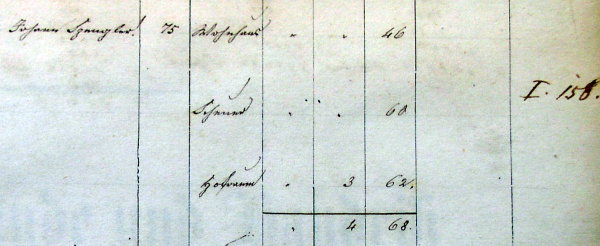 Johann Spengler. 75 Wohnhaus " " 46
I. 158.
Scheuer " " 60
Hofraum " 3 62.
4 68.